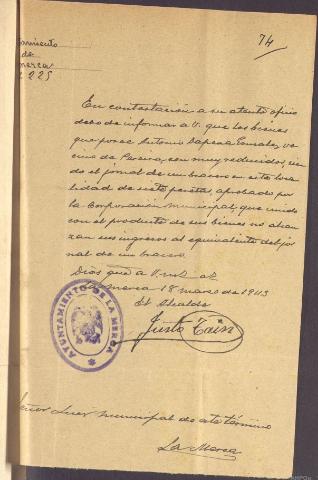 74
de
merca
225
En contestacion a su atento oficio
debo de informar a V. que los bienes
que posee Antonio Dapena Gonzalez, ve
cino de Pereira, son muy reducidos, sien
do el jornal de un bracero en esta loca
lidad de siete pesetas, aprobado por
la Corporacion Municipal, que unido
con el producto de sus bienes no alcan
zan sus ingresos al equivalente del jor
nal de un bracero.
Dios gue a V. m.s a.s
La Merca 18 marzo de 1943
El Alcalde
Justo
AYUNTAMIENTO DE LA MERCA
Señor Juez municipal de este término
La Merca